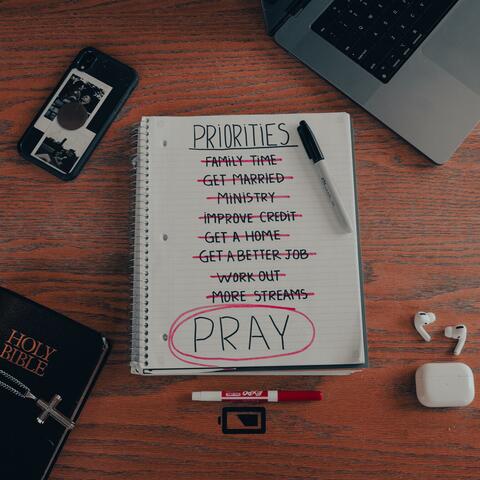 PRIORITIES
FAMILY TIME
GET MARRIED
MINISTRY
IMPROVE CREDIT
GET A HOME
GET A BETTER JOB
WORK OUT
MORE STREAMS
PRAY
HOLY
BIBLE
EXPO